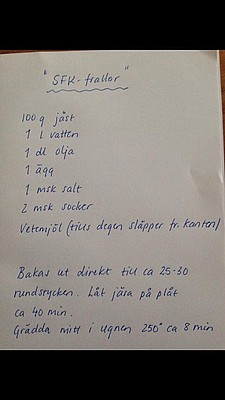 "SFK-frallor"
100 g jäst
1 l vatten
1 dl olja
1 ägg
1 msk salt
2 msk socker
Vetemjöl (tills degen släpper fr. kanten)
Bakas ut direkt till ca 25-30
rundstycken. Låt jäsa på plåt
ca 40 min.
Grädda mitt i ugnen 250° ca 8 min